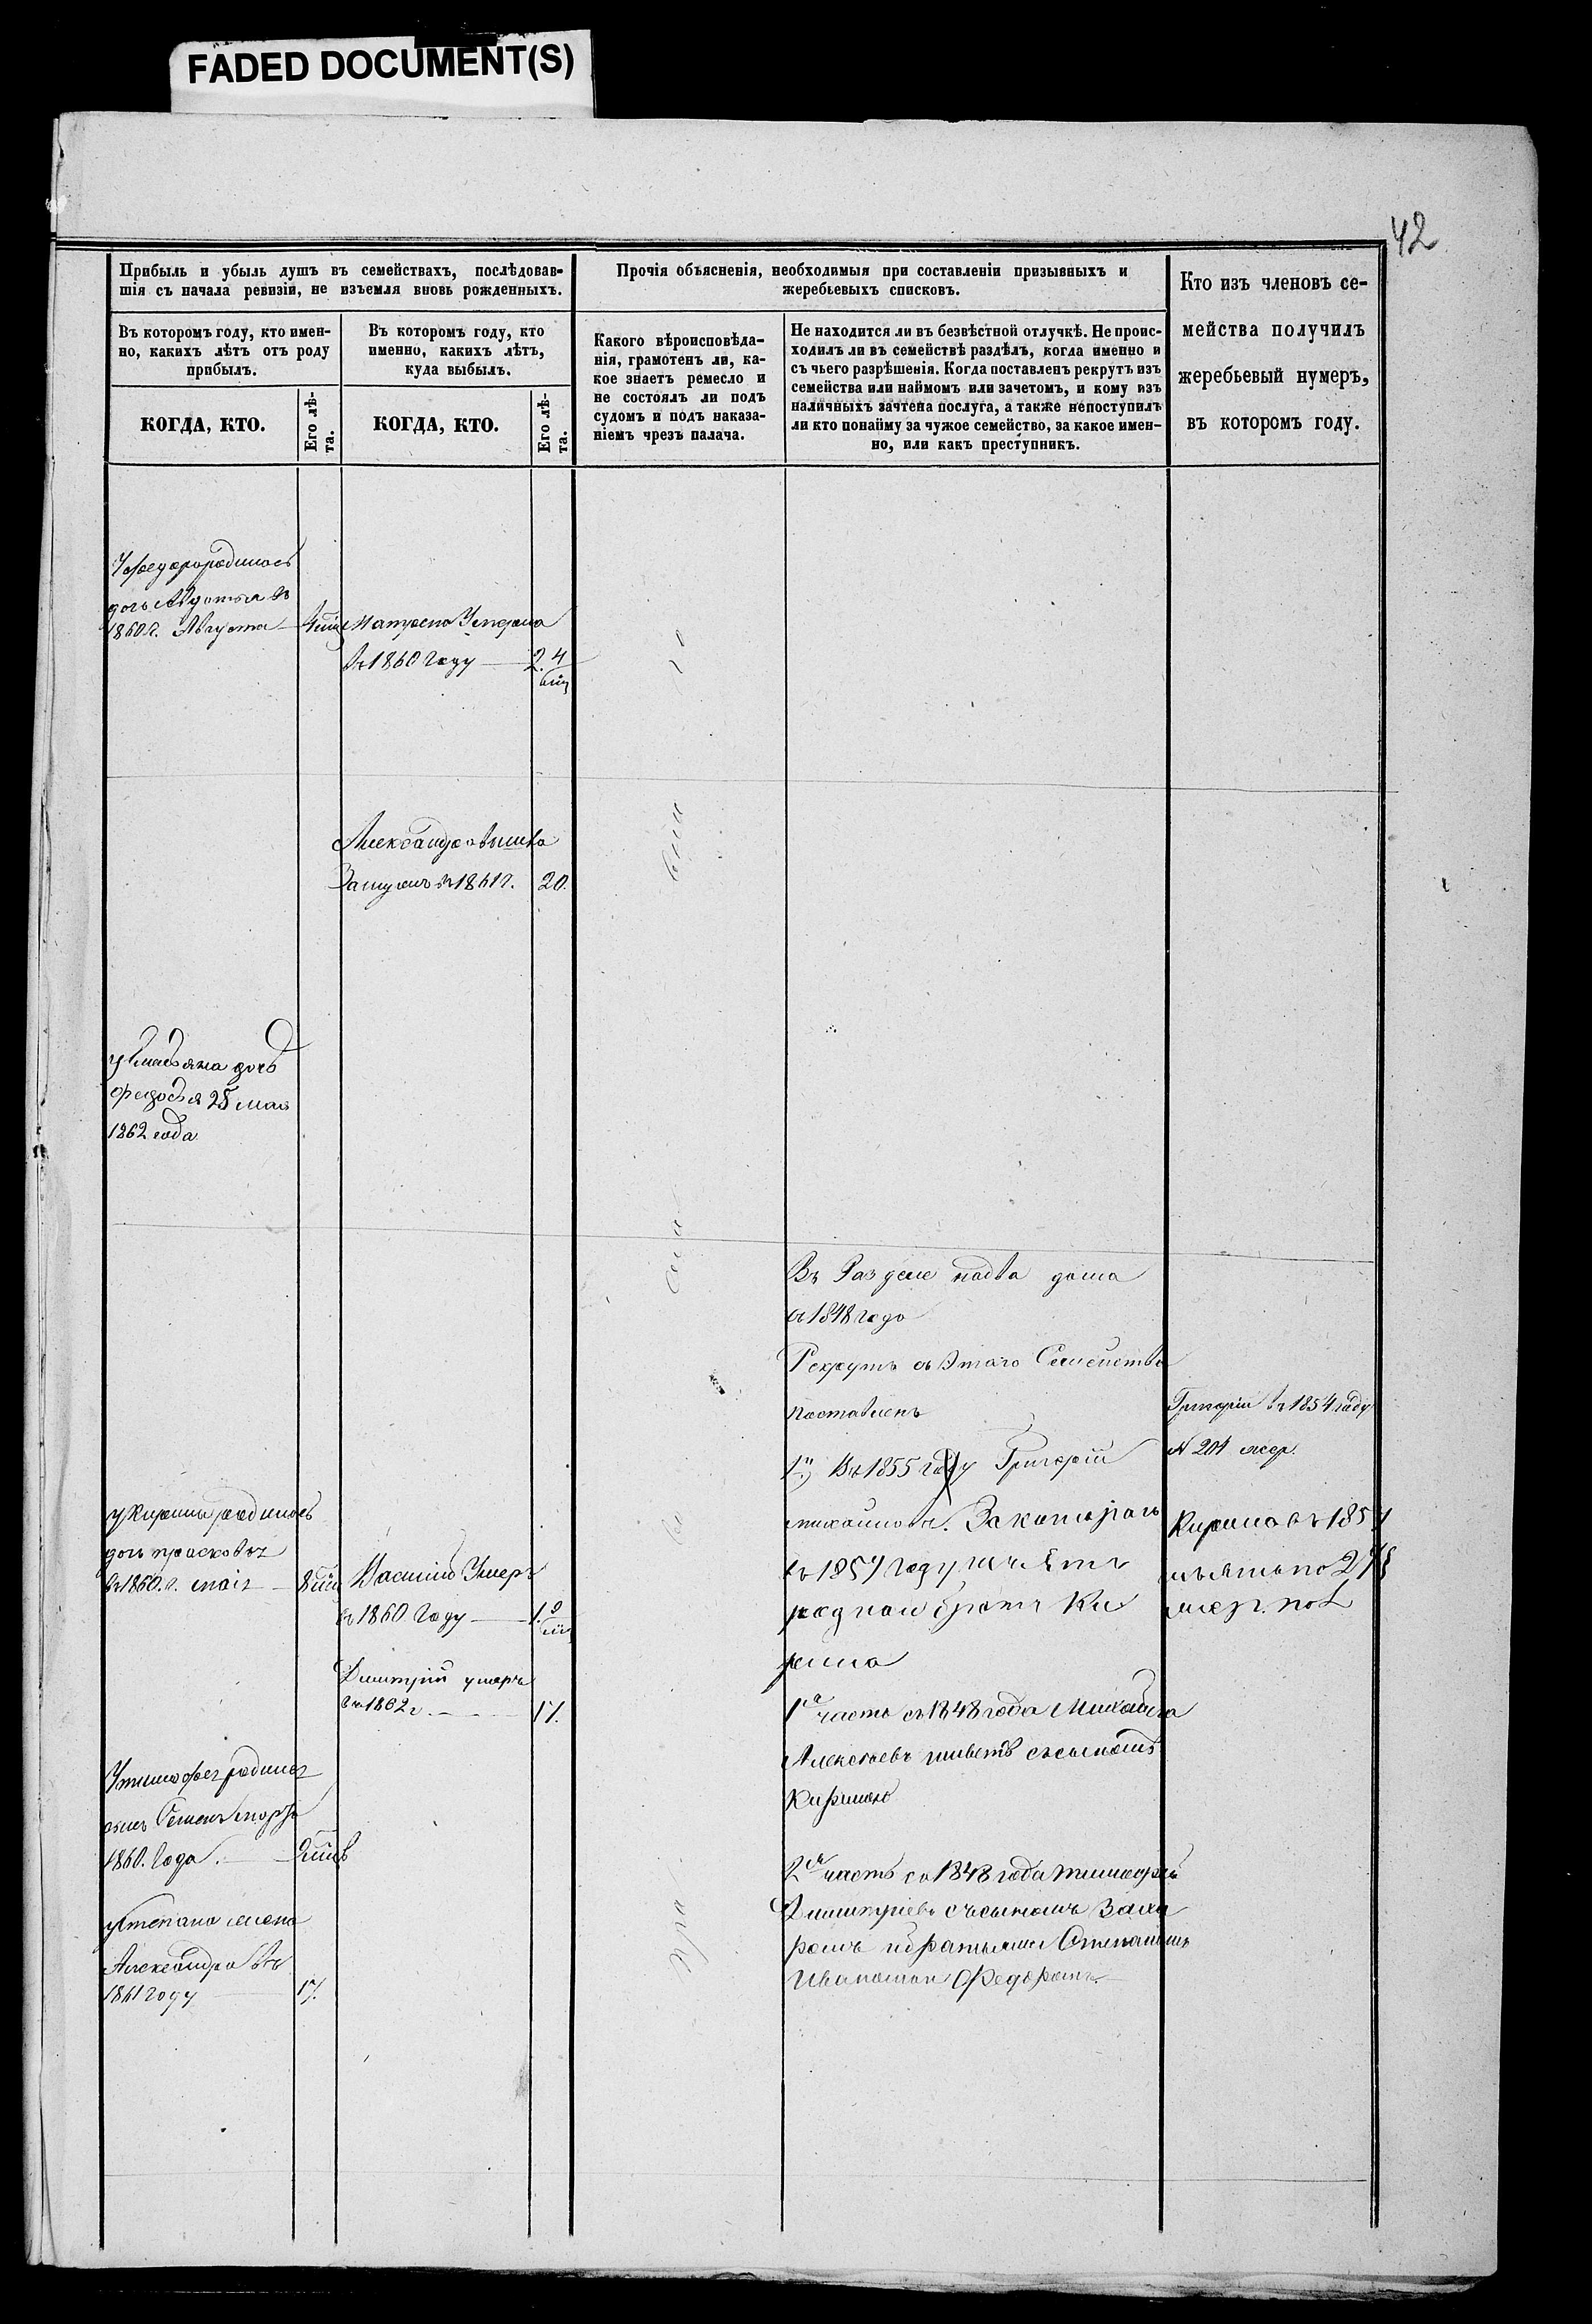 FADED DOCUMENT(S)
42
Прибыль и убыль душъ въ семействахъ, послѣдовав-
шія съ начала ревизіи, не изъемля вновь рожденныхъ.
Въ которомъ году, кто имен-
но, какихъ лѣтъ отъ роду
прибылъ.
КОГДА, КТО.
Его лѣ-
та.
Въ которомъ году, кто
именно, какихъ лѣтъ,
куда выбылъ.
КОГДА, КТО.
Его лѣ-
та.
Прочія объясненія, необходимыя при составленіи призывныхъ и
жеребьевыхъ списковъ.
Какого вѣроисповѣда-
нія, грамотенъ ли, ка-
кое знаетъ ремесло и
не состоялъ ли подъ
судомъ и подъ наказа-
ніемъ чрезъ палача.
Не находится ли въ безвѣстной отлучкѣ. Не проис-
ходилъ ли въ семействѣ раздѣлъ, когда именно и
съ чьего разрѣшенія. Когда поставленъ рекрутъ изъ
семейства или наймомъ или зачетомъ, и кому изъ
наличныхъ зачтена послуга, а также непоступилъ
ли кто понайму за чужое семейство, за какое имен-
но, или какъ преступникъ.
Кто изъ членовъ се-
мейства получилъ
жеребьевый нумеръ,
въ которомъ году.
дочь Авдотья въ
1860 г. Августа
Матрена Умерла
въ 1860 Году 2.4
Александра вышла
Замужъ въ 1861 г. 20.
дочь
Федосья 25 мая
1862 года
Въ Разделе на два дома
съ 1848 года
Рекрутъ съ Этаго Семейства
поставленъ
1) Въ 1855 году Григорій
Михаиловъ. За котораго
въ 1857 году
родной братъ Ки
рила
1я часть съ 1848 года Михаила
Алексеевъ живетъ съ сыномъ
Кирилою
2я часть со 1848 года Тимофей
Дмитріевъ съ сыномъ Заха
ромъ и братьями Степаномъ
Иваномъ Федоромъ
Григорій въ 1854 году
N 204 жер.
Кирила въ 185
у Кирилы родилась
дочь Прасковья
въ 1860. г. мая 8
Василій Умеръ
въ 1860 Году
Дмитрій умеръ
въ 1862 г. 17.
У Тимофея родился
сынъ Семенъ марта
1860. Года.
у Степана жена
Александра въ
1861 году 17.